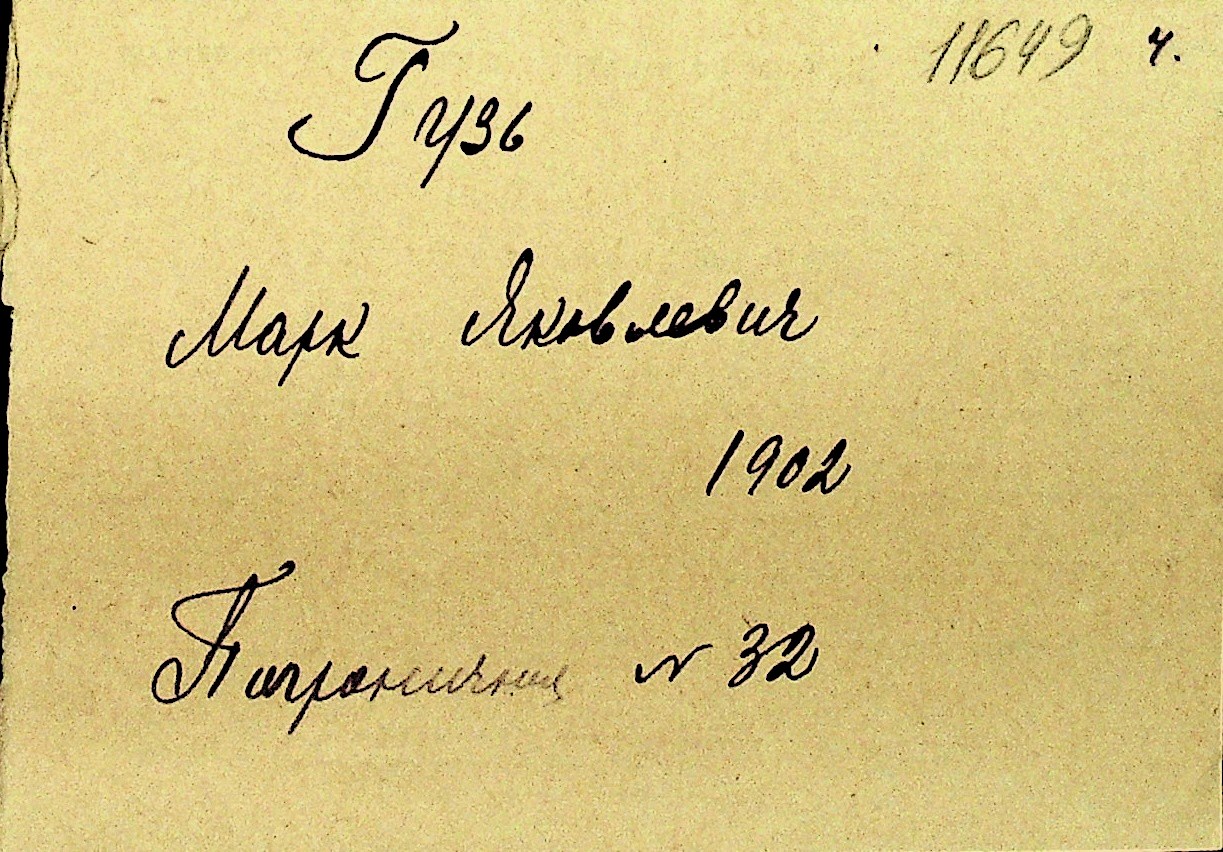 11649 ч.
Гузь
Марк Яковлевич
1902
Пограничная N 32